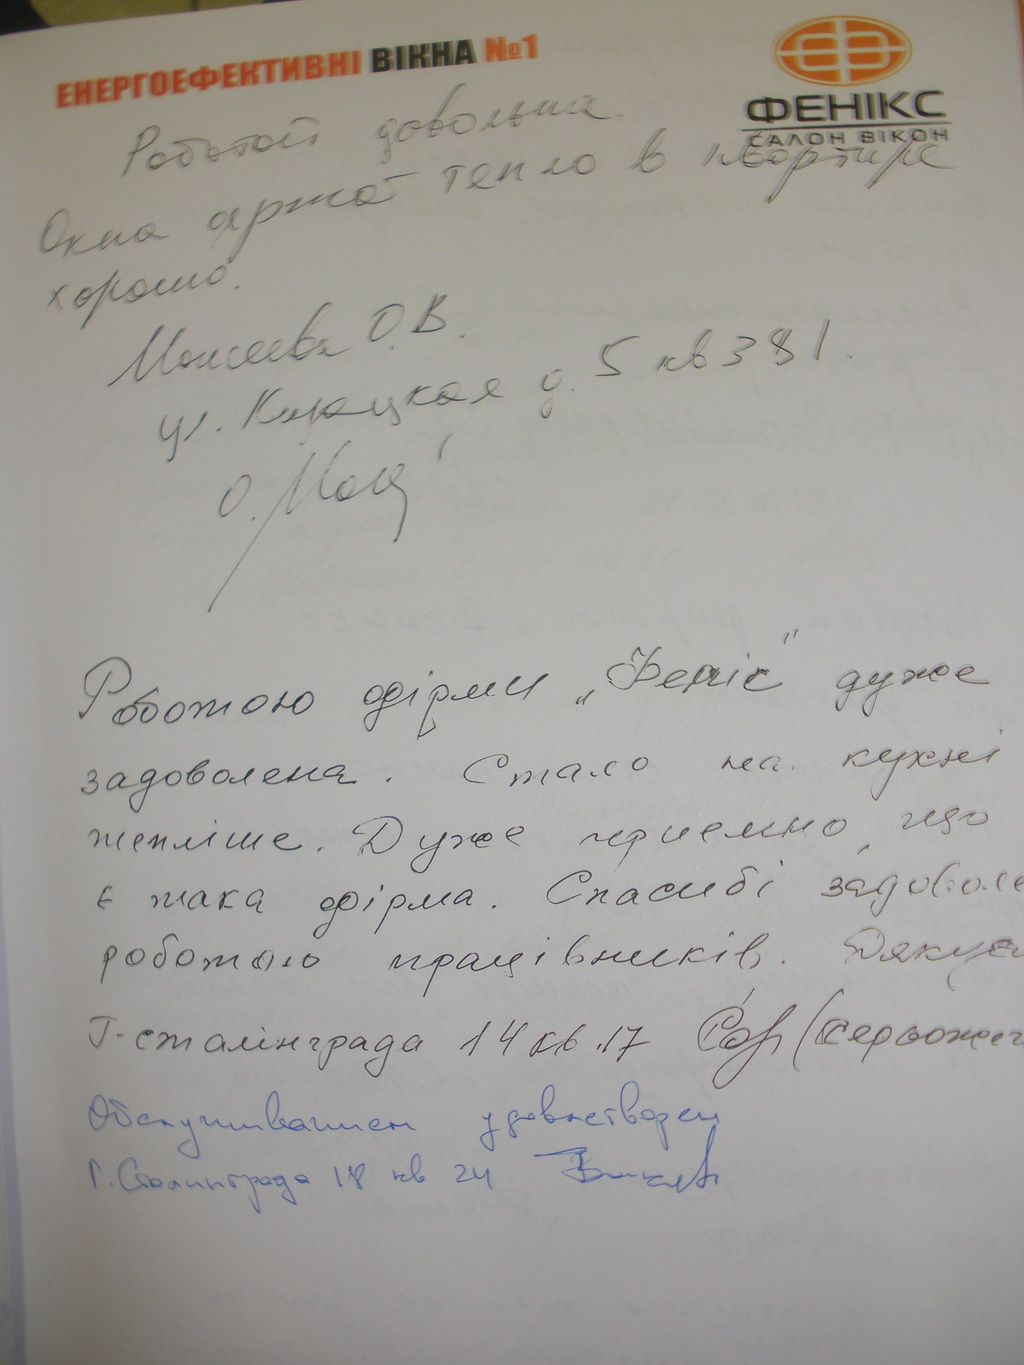 ЕНЕРГОЕФЕКТИВНІ ВІКНА №1
ФЕНІКС
САЛОН ВІКОН
Работой довольна.
Окна держат тепло в квартире
хорошо.
Моисеева О.В.
ул. д. 5 кв 381.
Роботою фірми „Фенікс" дуже
задоволена. Стало на кухні
тепліше. Дуже приємно, що
є така фірма. Спасибі задоволе
роботою працівників. Дякую
Г-сталінграда 14 кв.17
Обслуживанием удовлетворен
Г. Сталинграда 18 кв 24